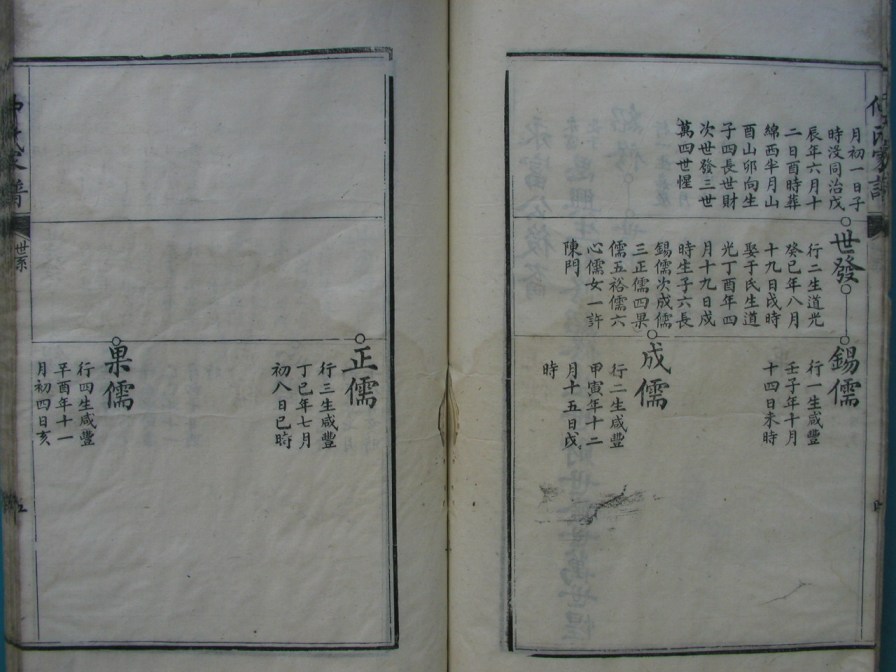 月初一日子
時沒同治戊
辰年六月十
二日酉時葬
綿西半月山
酉山卯向生
子四長世財
次世發三世
萬四世惺
世發
行二生道光
癸巳年八月
十九日戌時
娶于氏生道
光丁酉年四
月十九日戌
時生子六長
錫儒次成儒
三正儒四果
儒五裕儒六
心儒女一許
陳門
錫儒
行一生咸豐
壬子年十月
十四日未時
成儒
行二生咸豐
甲寅年十二
月十五日戌
時
正儒
行三生咸豐
丁巳年七月
初八日巳時
果儒
行四生咸豐
辛酉年十一
月初四日亥
世系
五